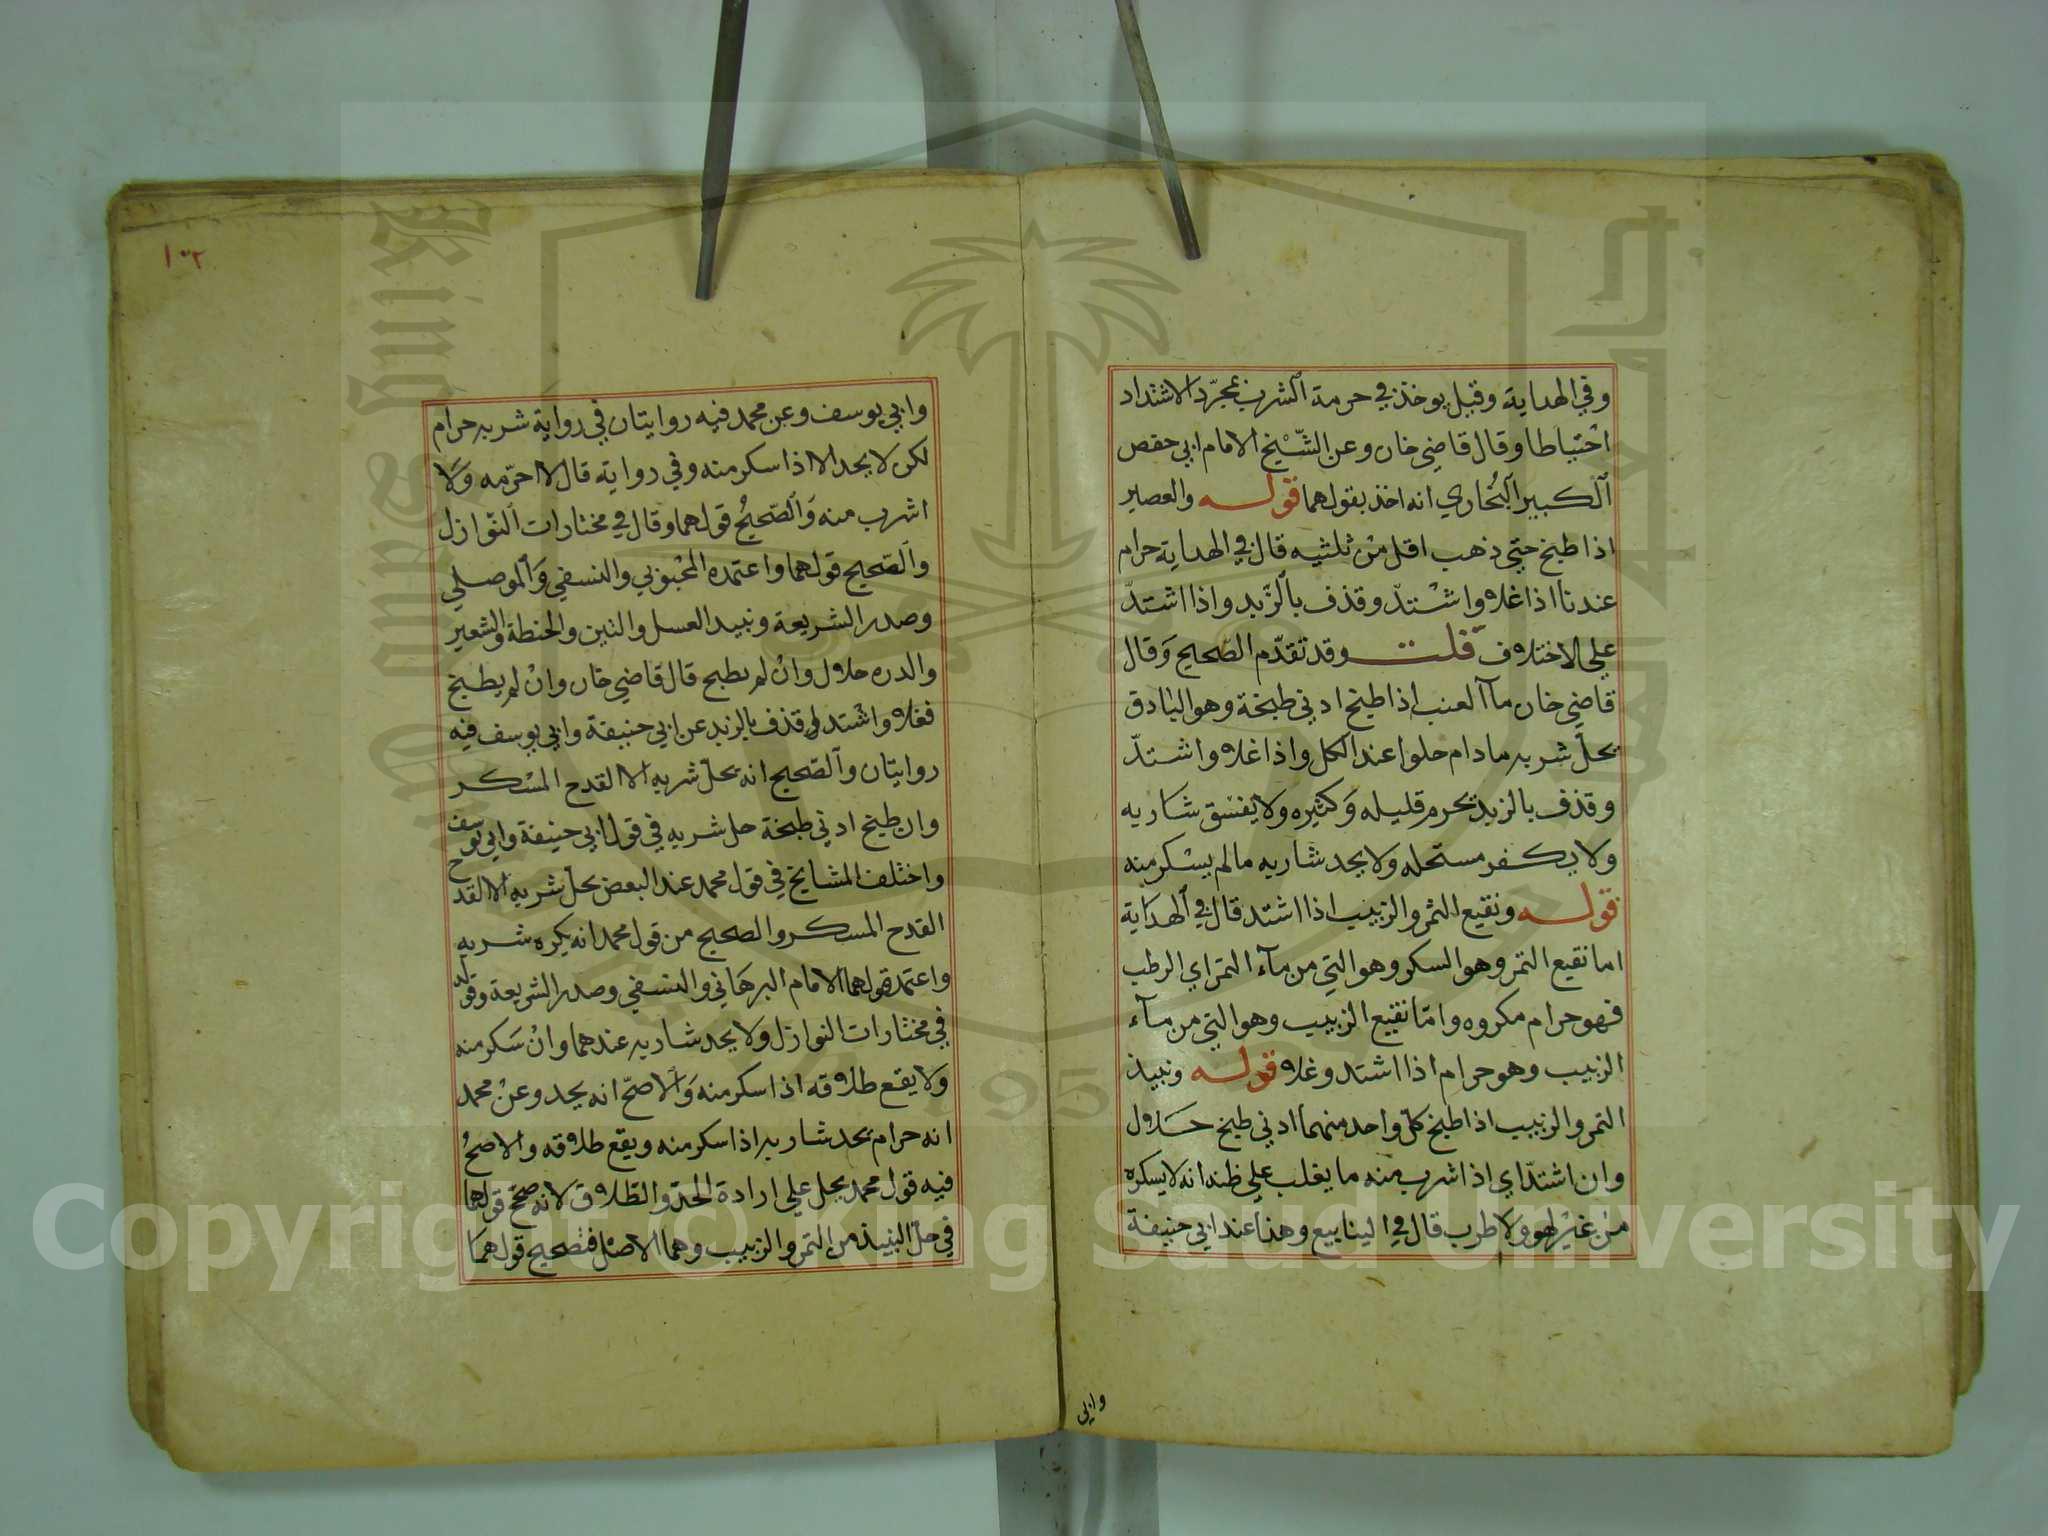 وفي الهداية وقيل يوخذ في حرمة الشرب بمجرّد الاشتداد
احتياطا وقال قاضي خان وعن الشّيخ الامام ابي حفص
الكبير البخاري انه اخذ بقولهما قوله والعصير
اذا طبخ حتي ذهب اقل من ثلثيه قال في الهداية حرام
عندنا اذا غلا واشتدّ وقذف بالزّبد واذا اشتدّ
علي الاختلاف قلت وقد تقدّم الصّحيح وقال
قاضي خان ماآ لعنب اذا طبخ ادني طبخة وهو الباذق
يحلّ شربه مادام حلوا عند الكل واذا غلا واشتدّ
وقذف بالزبد يحرم قليله وكثيره ولا يفسق شاربه
ولا يكفر مستحله ولا يحد شاربه مالم يسكر منه
قوله ونقيع التمر والزبيب اذا اشتد قال في الهداية
اما نقيع التمر وهو السكر وهو التي من مآء التمر اي الرطب
فهو حرام مكروه وامّا نقيع الزبيب وهو التي من مآء
الزبيب وهو حرام اذا اشتد وغلا قوله ونبيذ
التمر والزبيب اذا طبخ كل واحد منهما ادني طبخ حلال
وان اشتدّ اي اذا شرب منه ما يغلب علي ظنه انه لا يسكره
من غير لهو ولا طرب قال في الينابيع وهذا عند ابي حنيفة
وابي
١٠٢
وابي يوسف وعن محمد فيه روايتان في رواية شربه حرام
لكن لا يحد الا اذا سكر منه وفي رواية قال لا احرّمه ولا
اشرب منه والصّحيح قولهما وقال في مختارات النّوازل
والصّحيح قولهما واعتمده المحبوبي والنسفي والموصلي
وصدر الشريعة ونبيد العسل والتين والحنطة والشعير
والدره حلال وان لم يطبح قال قاضي خان وان لم يطبخ
فغلا واشتد وقذف بالزبد عن ابي حنيفة وابي يوسف فيه
روايتان والصّحيح انه يحلّ شربه الا القدح المسكر
وان طبخ ادني طبخة حل شربه في قول ابي حنيفة وابي يوسف
واختلف المشايخ في قول محمد عند البعض يحلّ شربه الا القدح
القدح المسكر والصحيح من قول محمد انه يكره شربه
واعتمد قولهما الامام البرهاني والنسفي وصدر الشريعة وقوله
في مختارات النوازل ولا يحد شاربه عندهما وان سكر منه
ولا يقع طلاقه اذا سكر منه والاصحّ انه يحد وعن محمد
انه حرام يحد شاربه اذا سكر منه ويقع طلاقه والاصحّ
فيه قول محمد يحل علي ارادة الحدّ والطّلاق لانه صحّ قولهما
في حلّ النبيذ من التمر والزبيب وهما الاصل فتصحيح قولهما
Copyright © King Saud University